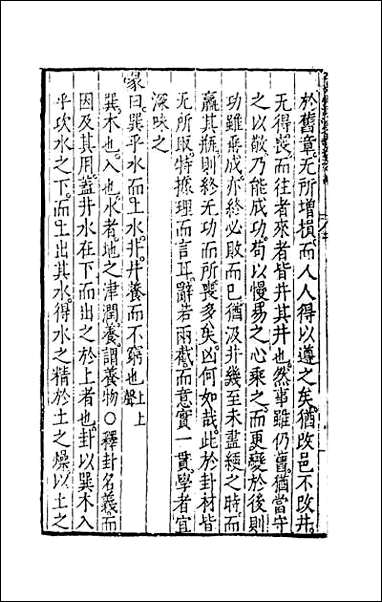 於舊章。无所增損。而人人得以遵之矣。猶改邑不改井。
无得喪。而往者來者皆井其井也。然事雖仍舊。猶當守
之以敬。乃能成功。苟以慢易之心乘之。而更變於後。則
功雖乘成。亦終必敗而已。猶汲井幾至未盡綆之時。而
羸其瓶。則終无功而所喪多矣。凶何如哉。此於卦材皆
无所取。特據理而言耳。辭若兩截。而意實一貫。學者宜
深味之
彖曰。巽乎水而上水。井。井養而不窮也。上上聲
巽。木也。入也。水者地之津潤。養。謂養物○釋卦名義。而
因及其用。蓋井水在下而出之於上者也。卦以巽木入
乎坎水之下。而上出其水。得水之精於土之燥。以土之